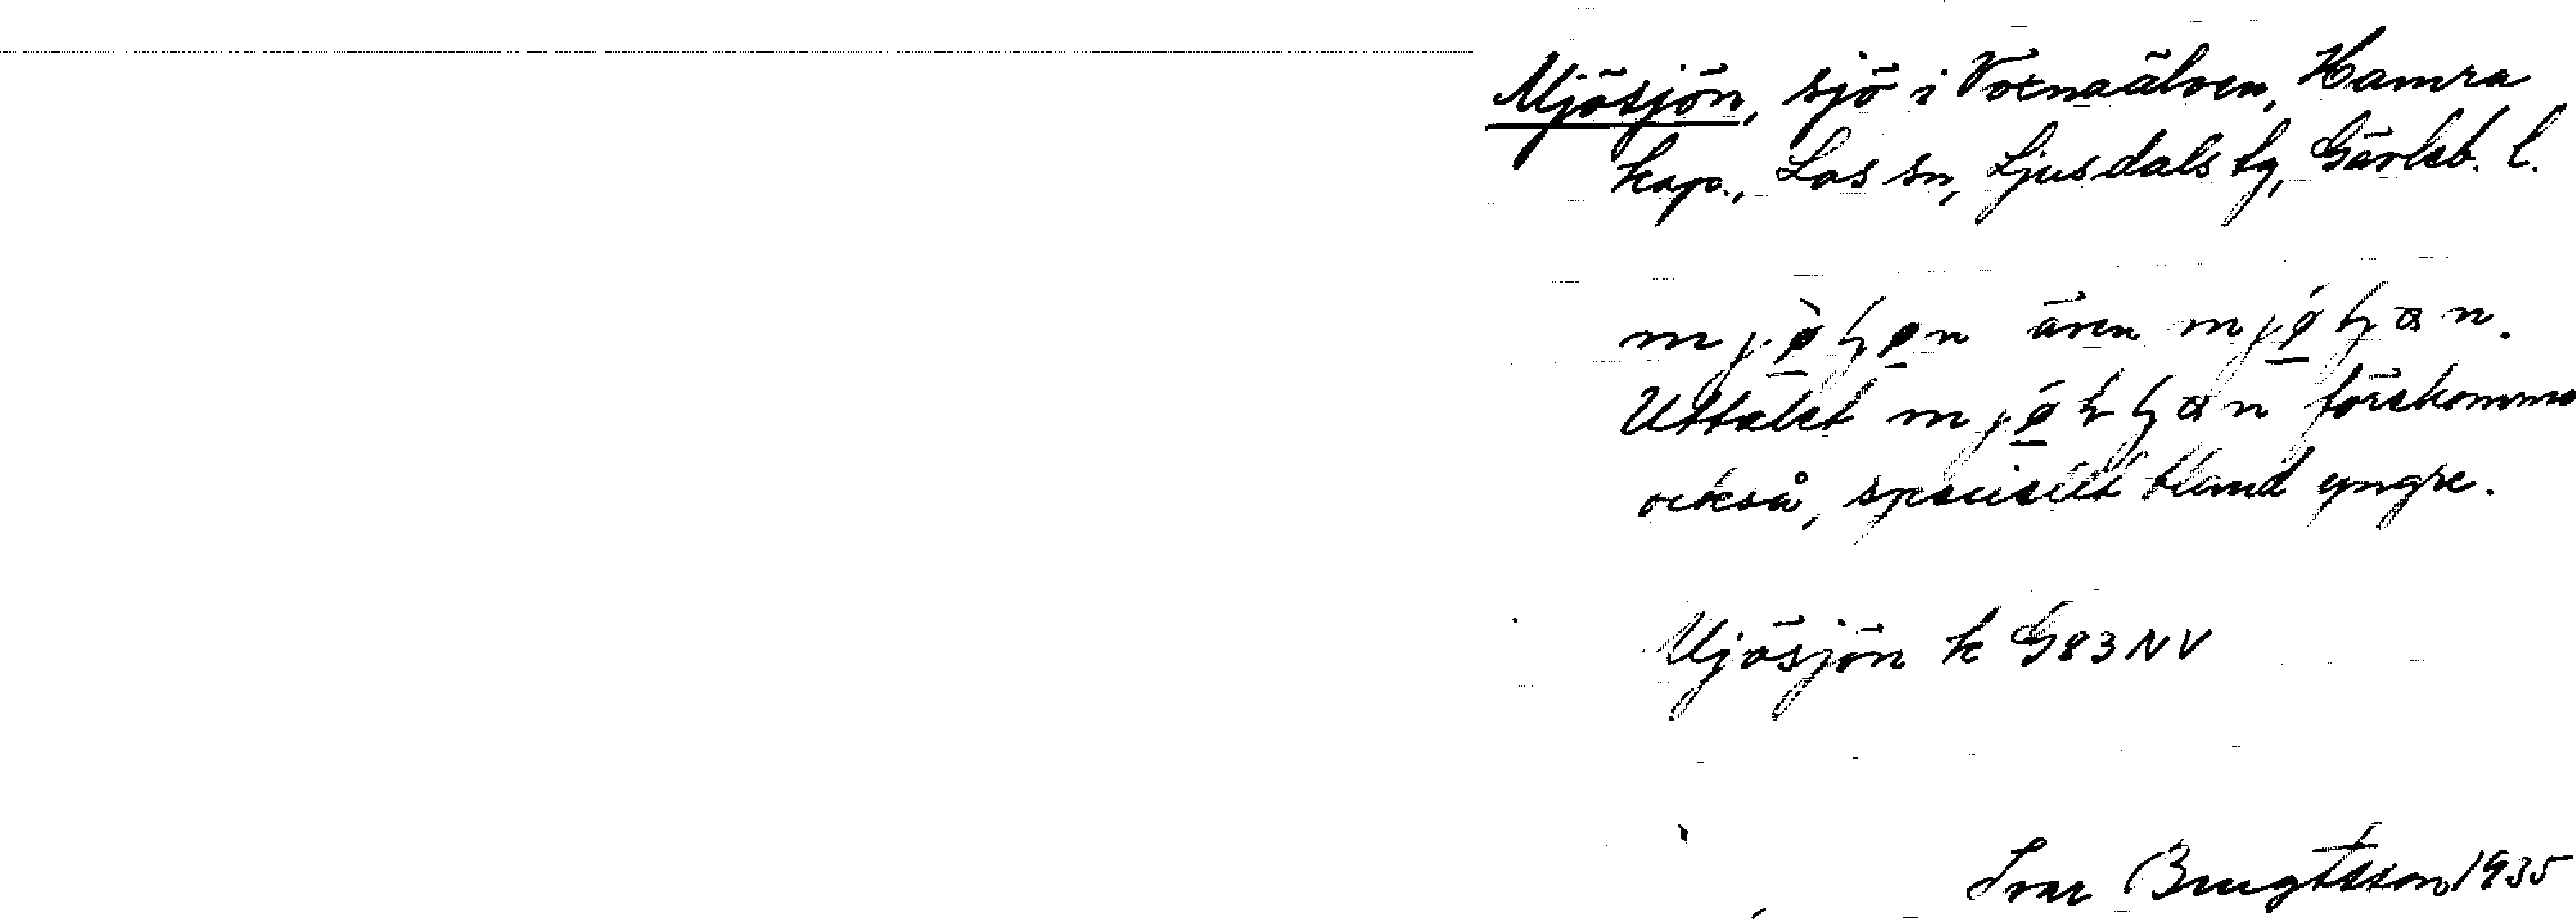 Mjösjön, sjö i Voxnaälven, Hamra
kap., Los sn, Ljusdals tg, Gävleb. l.
även
Uttalet förekomme
också, speciellt bland yngre.
Mjösjön k G83NV
Ivar Bengtsson 1935